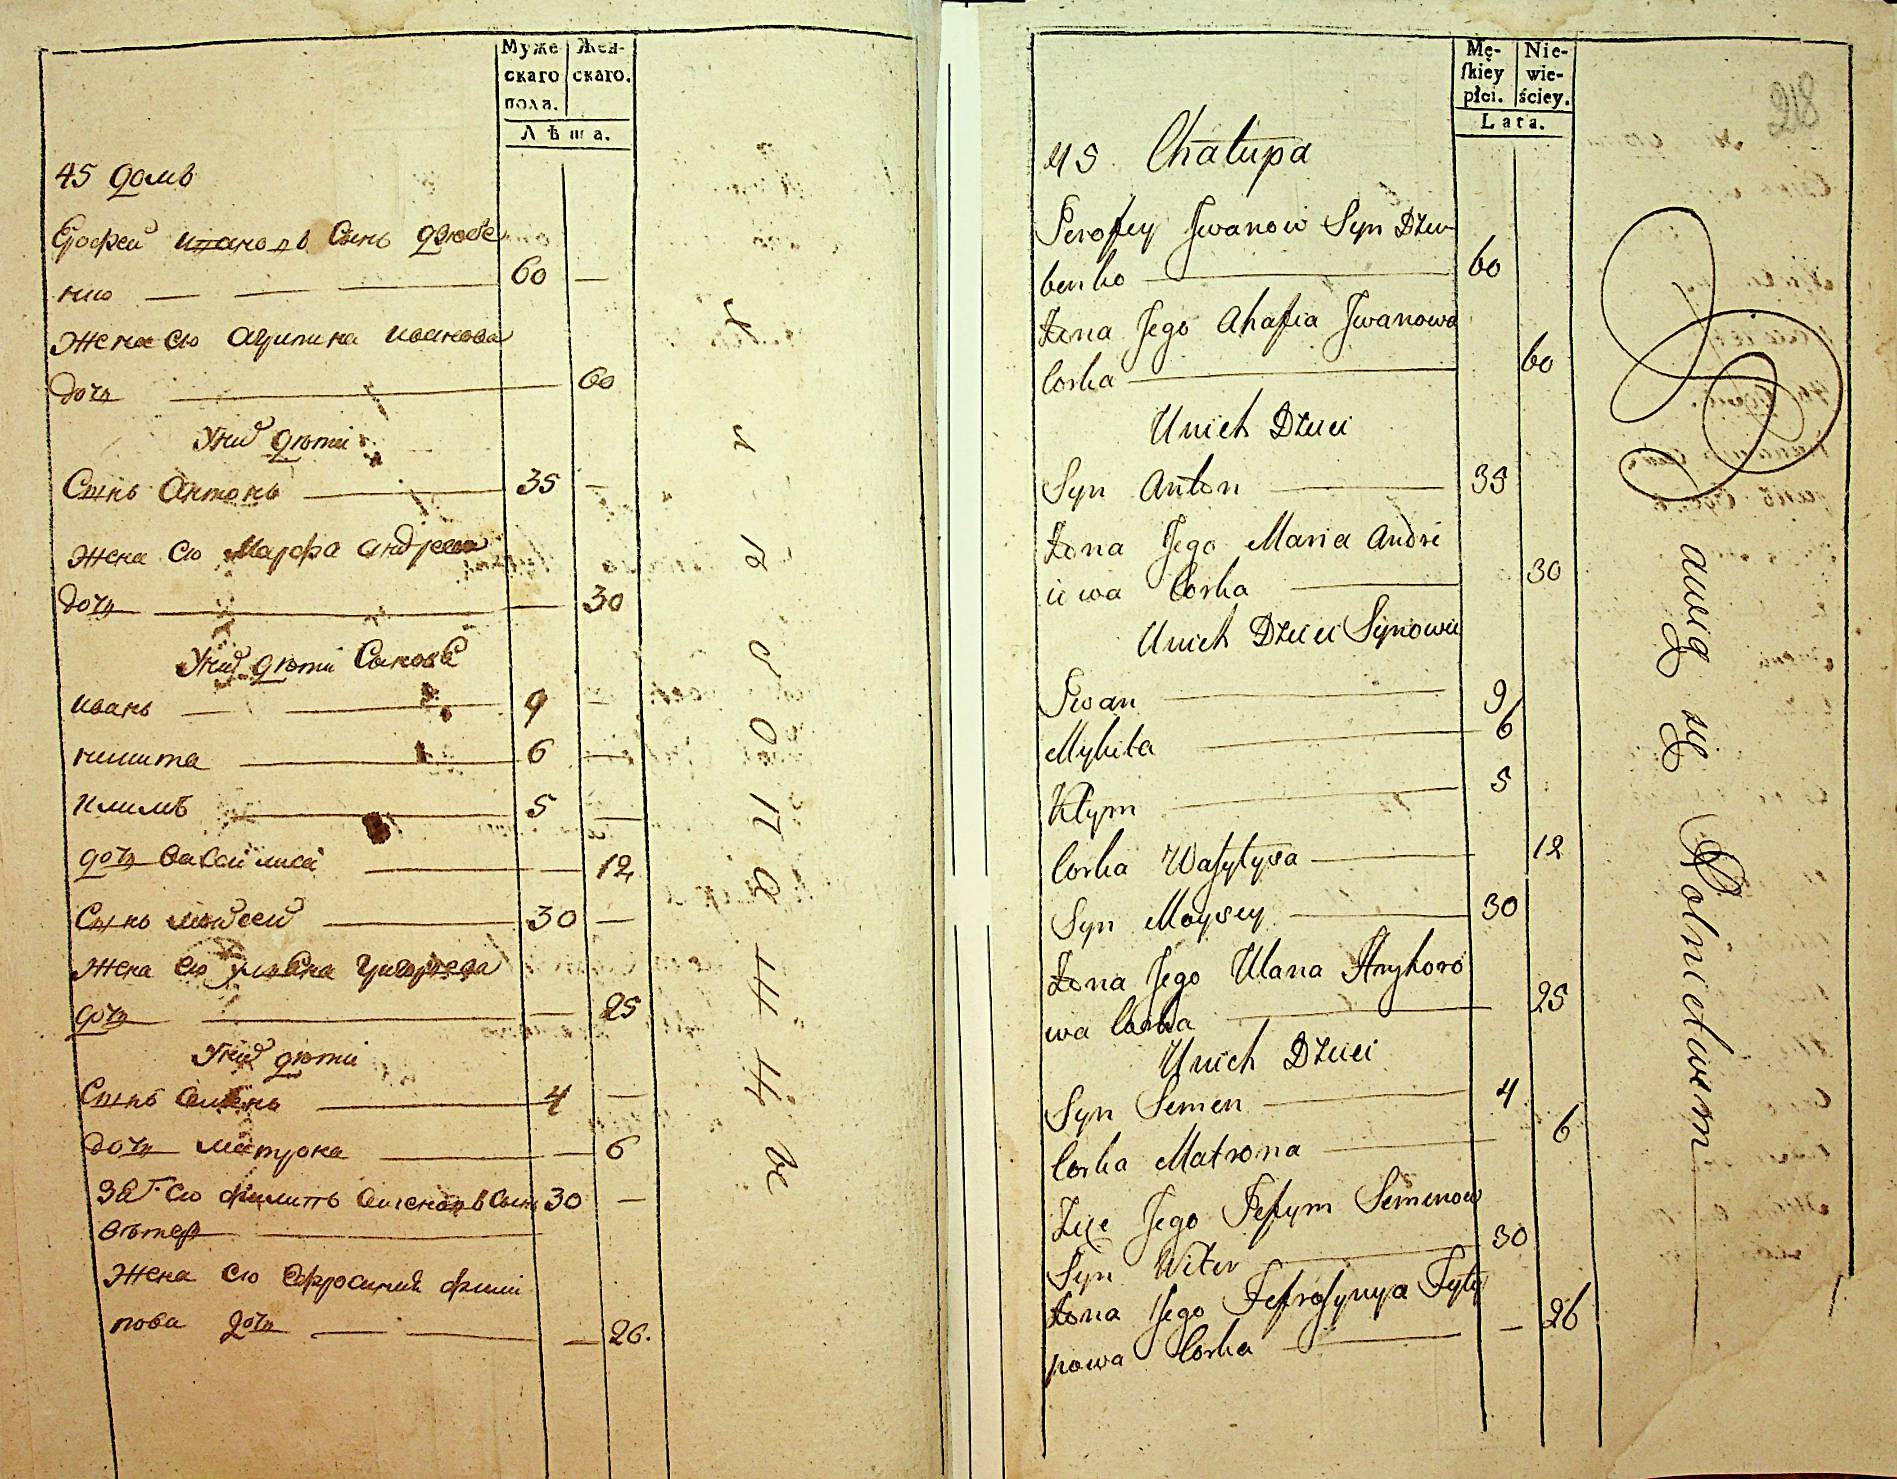 Муже-
скаго
пола.
Жен-
скаго.
Лѣта.
45 домъ
Ерофей Ивановъ Сынъ Дзюбе
нко — — — 60 —
Жена его Агрипина Иванова
дочь — 60
У них дѣти
Сынъ Антонъ — 35 —
Жена его Марфа Андреева
дочь — — 30
У них дѣти Сыновѣ
Иванъ — — 9 —
Никита — 6 —
Климъ — 5 —
дочь Васси лиса — — 12
Сынъ Мойсей — 30 —
Жена его Улияна Григорьева
дочь — — 25
У них дѣти
Сынъ Семенъ — 4 —
дочь Матрона — — 6
Зять его Филипъ Семеновъ Сынъ 30 —
Вѣтер —
Жена его Ефросиния Фили
пова дочь — — — 26.
Хлѣбопашцы
218
Mę-
skiey
płci.
Nie-
wie-
ściey.
Lata.
45 Chałupa
Jerofey Jwanow Syn Dziu
benko — 60
Żona Jego Ahafia Jwanowa
Corka — 60
Unich Dzieci
Syn Anton — 35
Żona Jego Maria Andri
iewa Corka — 30
Unich Dzieci Synowie
Jwan — 9
Mykita — 6
Kłym — 5
Corka Wasylysa — 12
Syn Moysey — 30
Żona Jego Ulana Hryhoro
wa Corka — 25
Unich Dzieci
Syn Semen — 4
Corka Matrona — 6
Zięc Jego Semenow
Syn Witer — 30
Żona Jego
powa Corka — — 26
Bawią się Rolnictwem